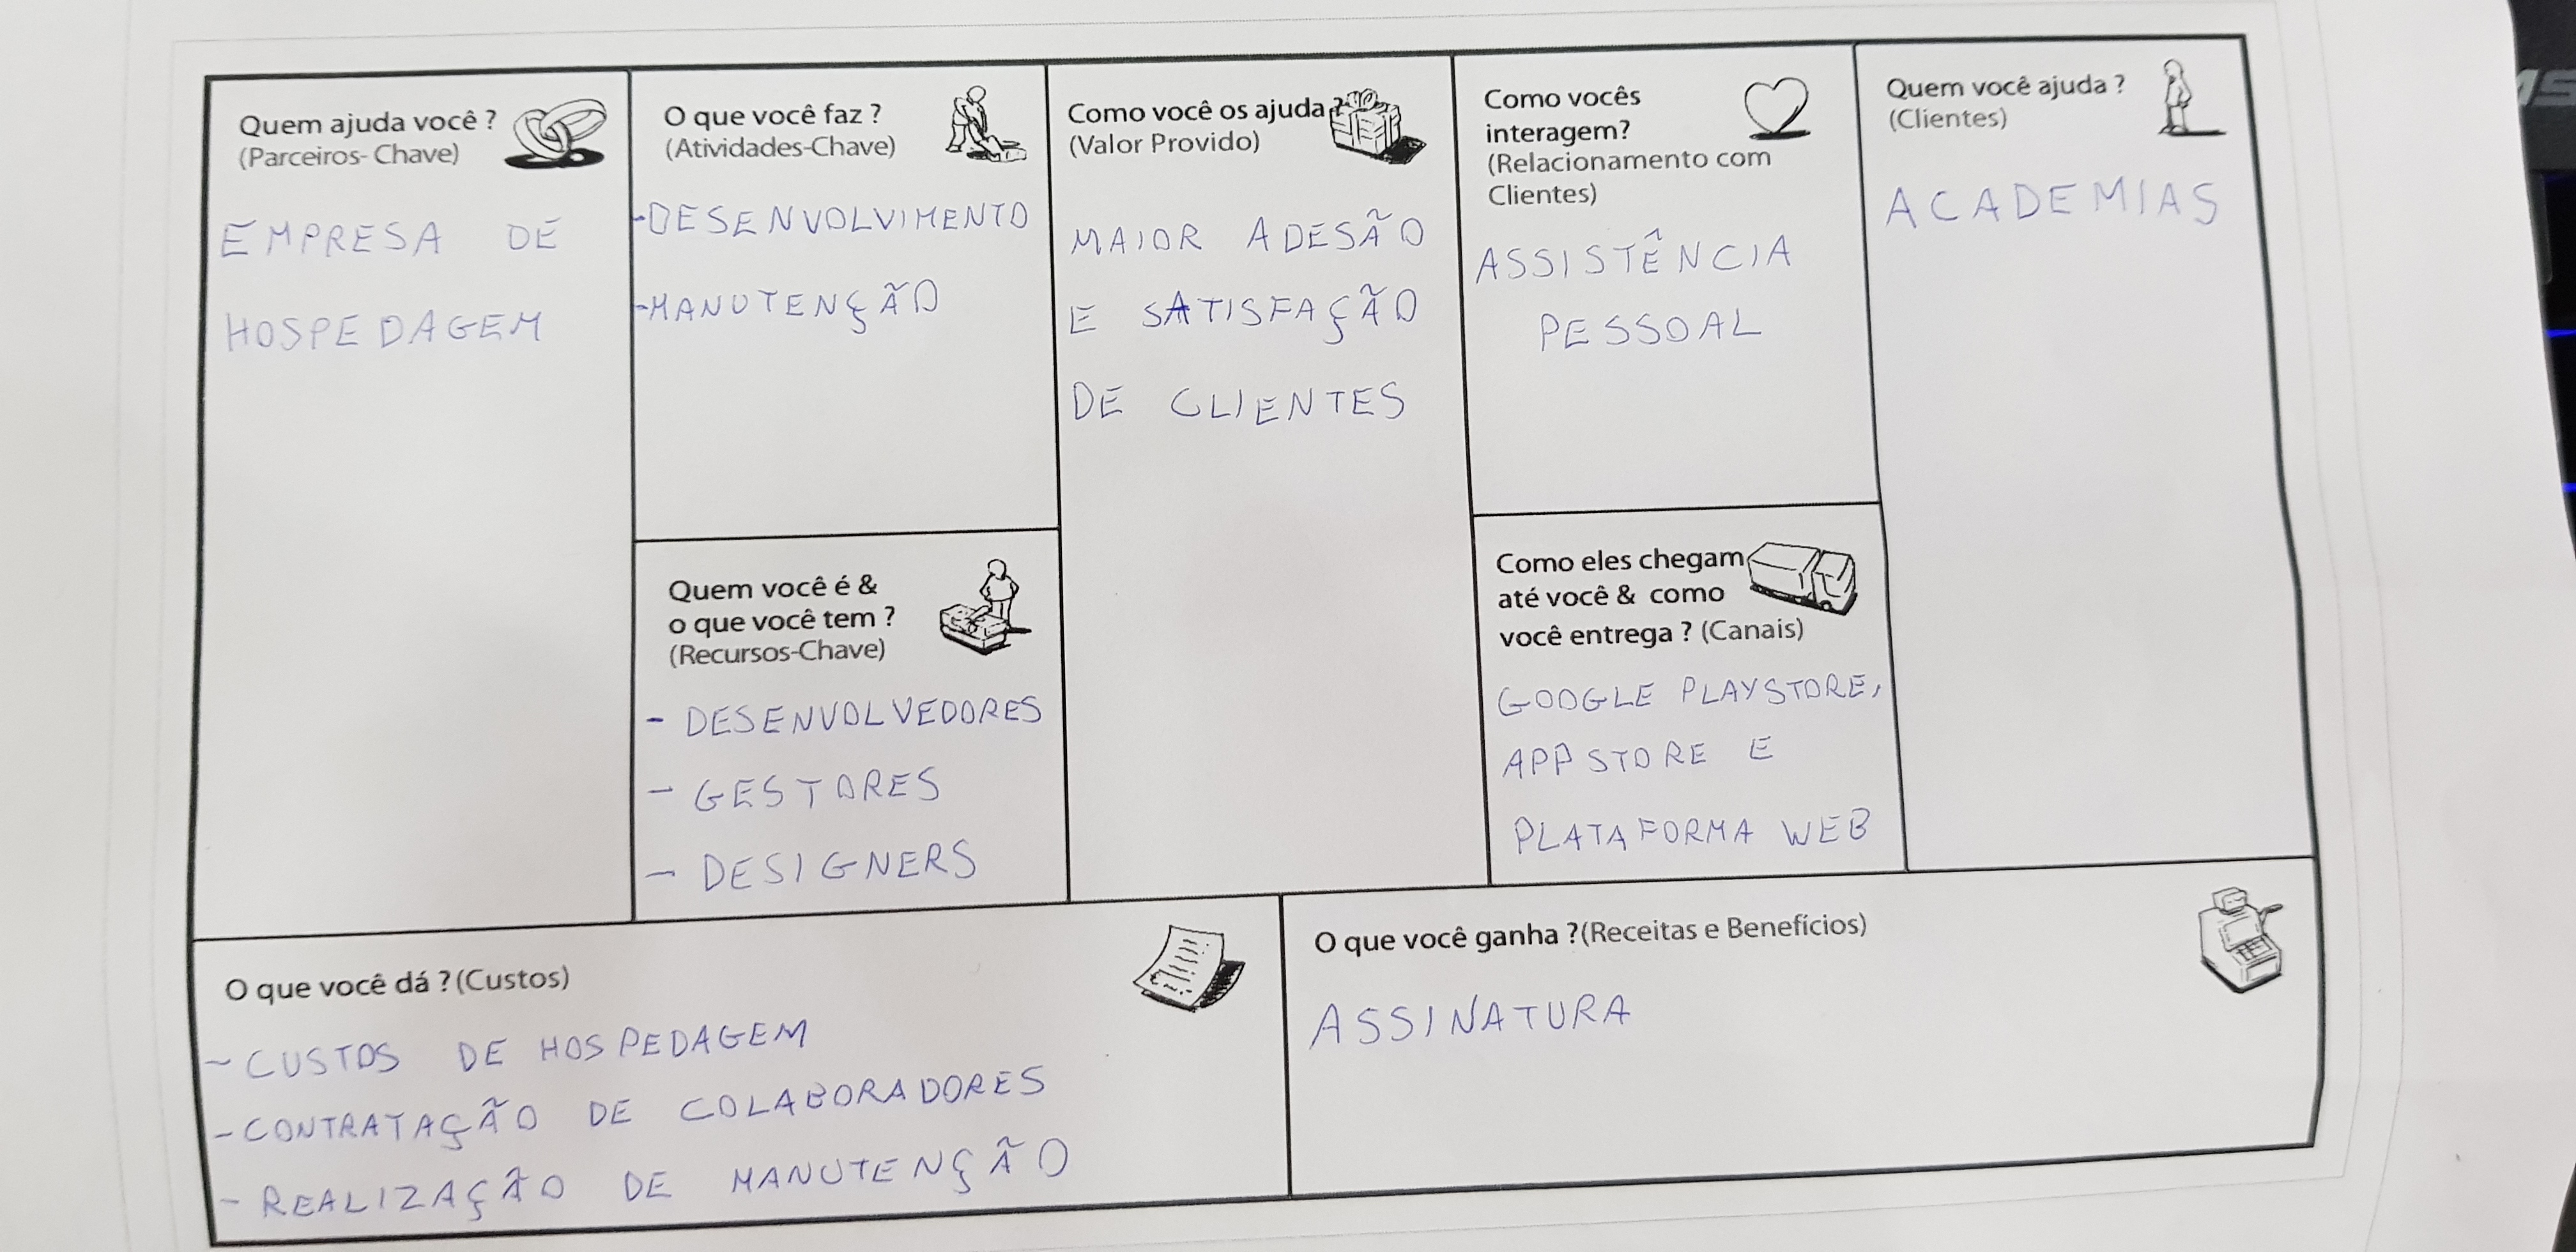 Quem ajuda você ?
(Parceiros- Chave)
EMPRESA DE
HOSPEDAGEM
O que você faz ?
(Atividades-Chave)
-DESENVOLVIMENTO
-MANUTENÇÃO
Quem você é &
o que você tem ?
(Recursos-Chave)
- DESENVOLVEDORES
- GESTORES
- DESIGNERS
Como você os ajuda ?
(Valor Provido)
MAIOR ADESÃO
E SATISFAÇÃO
DE CLIENTES
Como vocês
interagem?
(Relacionamento com
Clientes)
ASSISTÊNCIA
PESSOAL
Como eles chegam
até você & como
você entrega ? (Canais)
GOOGLE PLAYSTORE,
APPSTORE E
PLATAFORMA WEB
Quem você ajuda ?
(Clientes)
ACADEMIAS
O que você dá ?(Custos)
- CUSTOS DE HOSPEDAGEM
- CONTRATAÇÃO DE COLABORADORES
- REALIZAÇÃO DE MANUTENÇÃO
O que você ganha ?(Receitas e Benefícios)
ASSINATURA